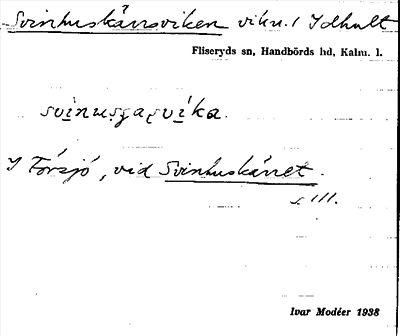 Svinhuskärrsviken vikn. i Idhult
Fliseryds sn, Handbörds hd, Kalm. l.
I Försjö, vid Svinhuskärret.
s. 111.
Ivar Modéer 1938